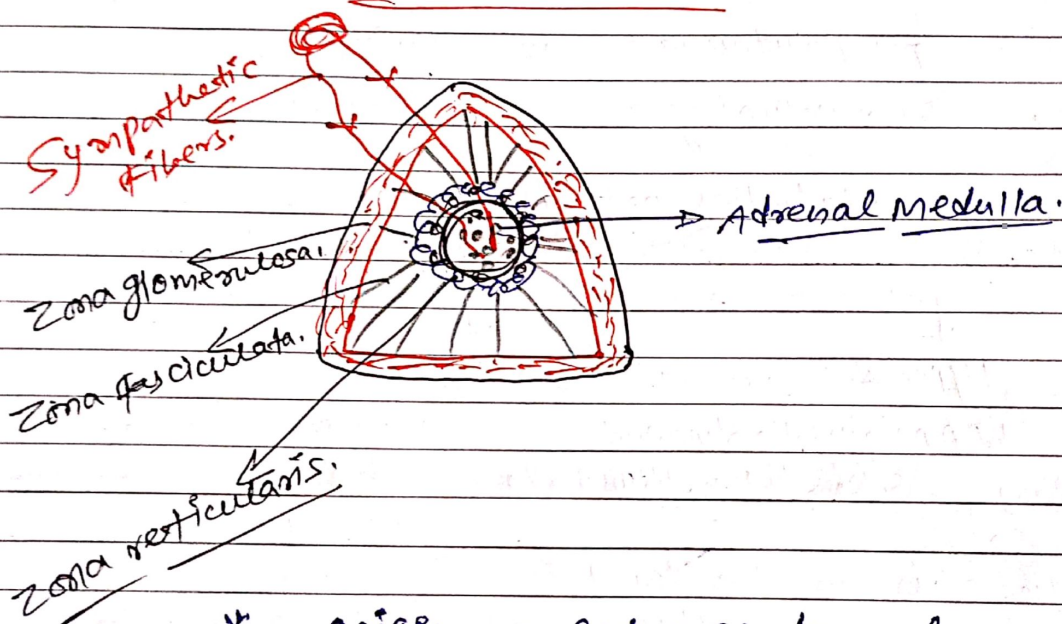 Sympathetic
fibers.
Adrenal Medulla.
Zona glomerulosa.
Zona fasciculata.
Zona resticularis.